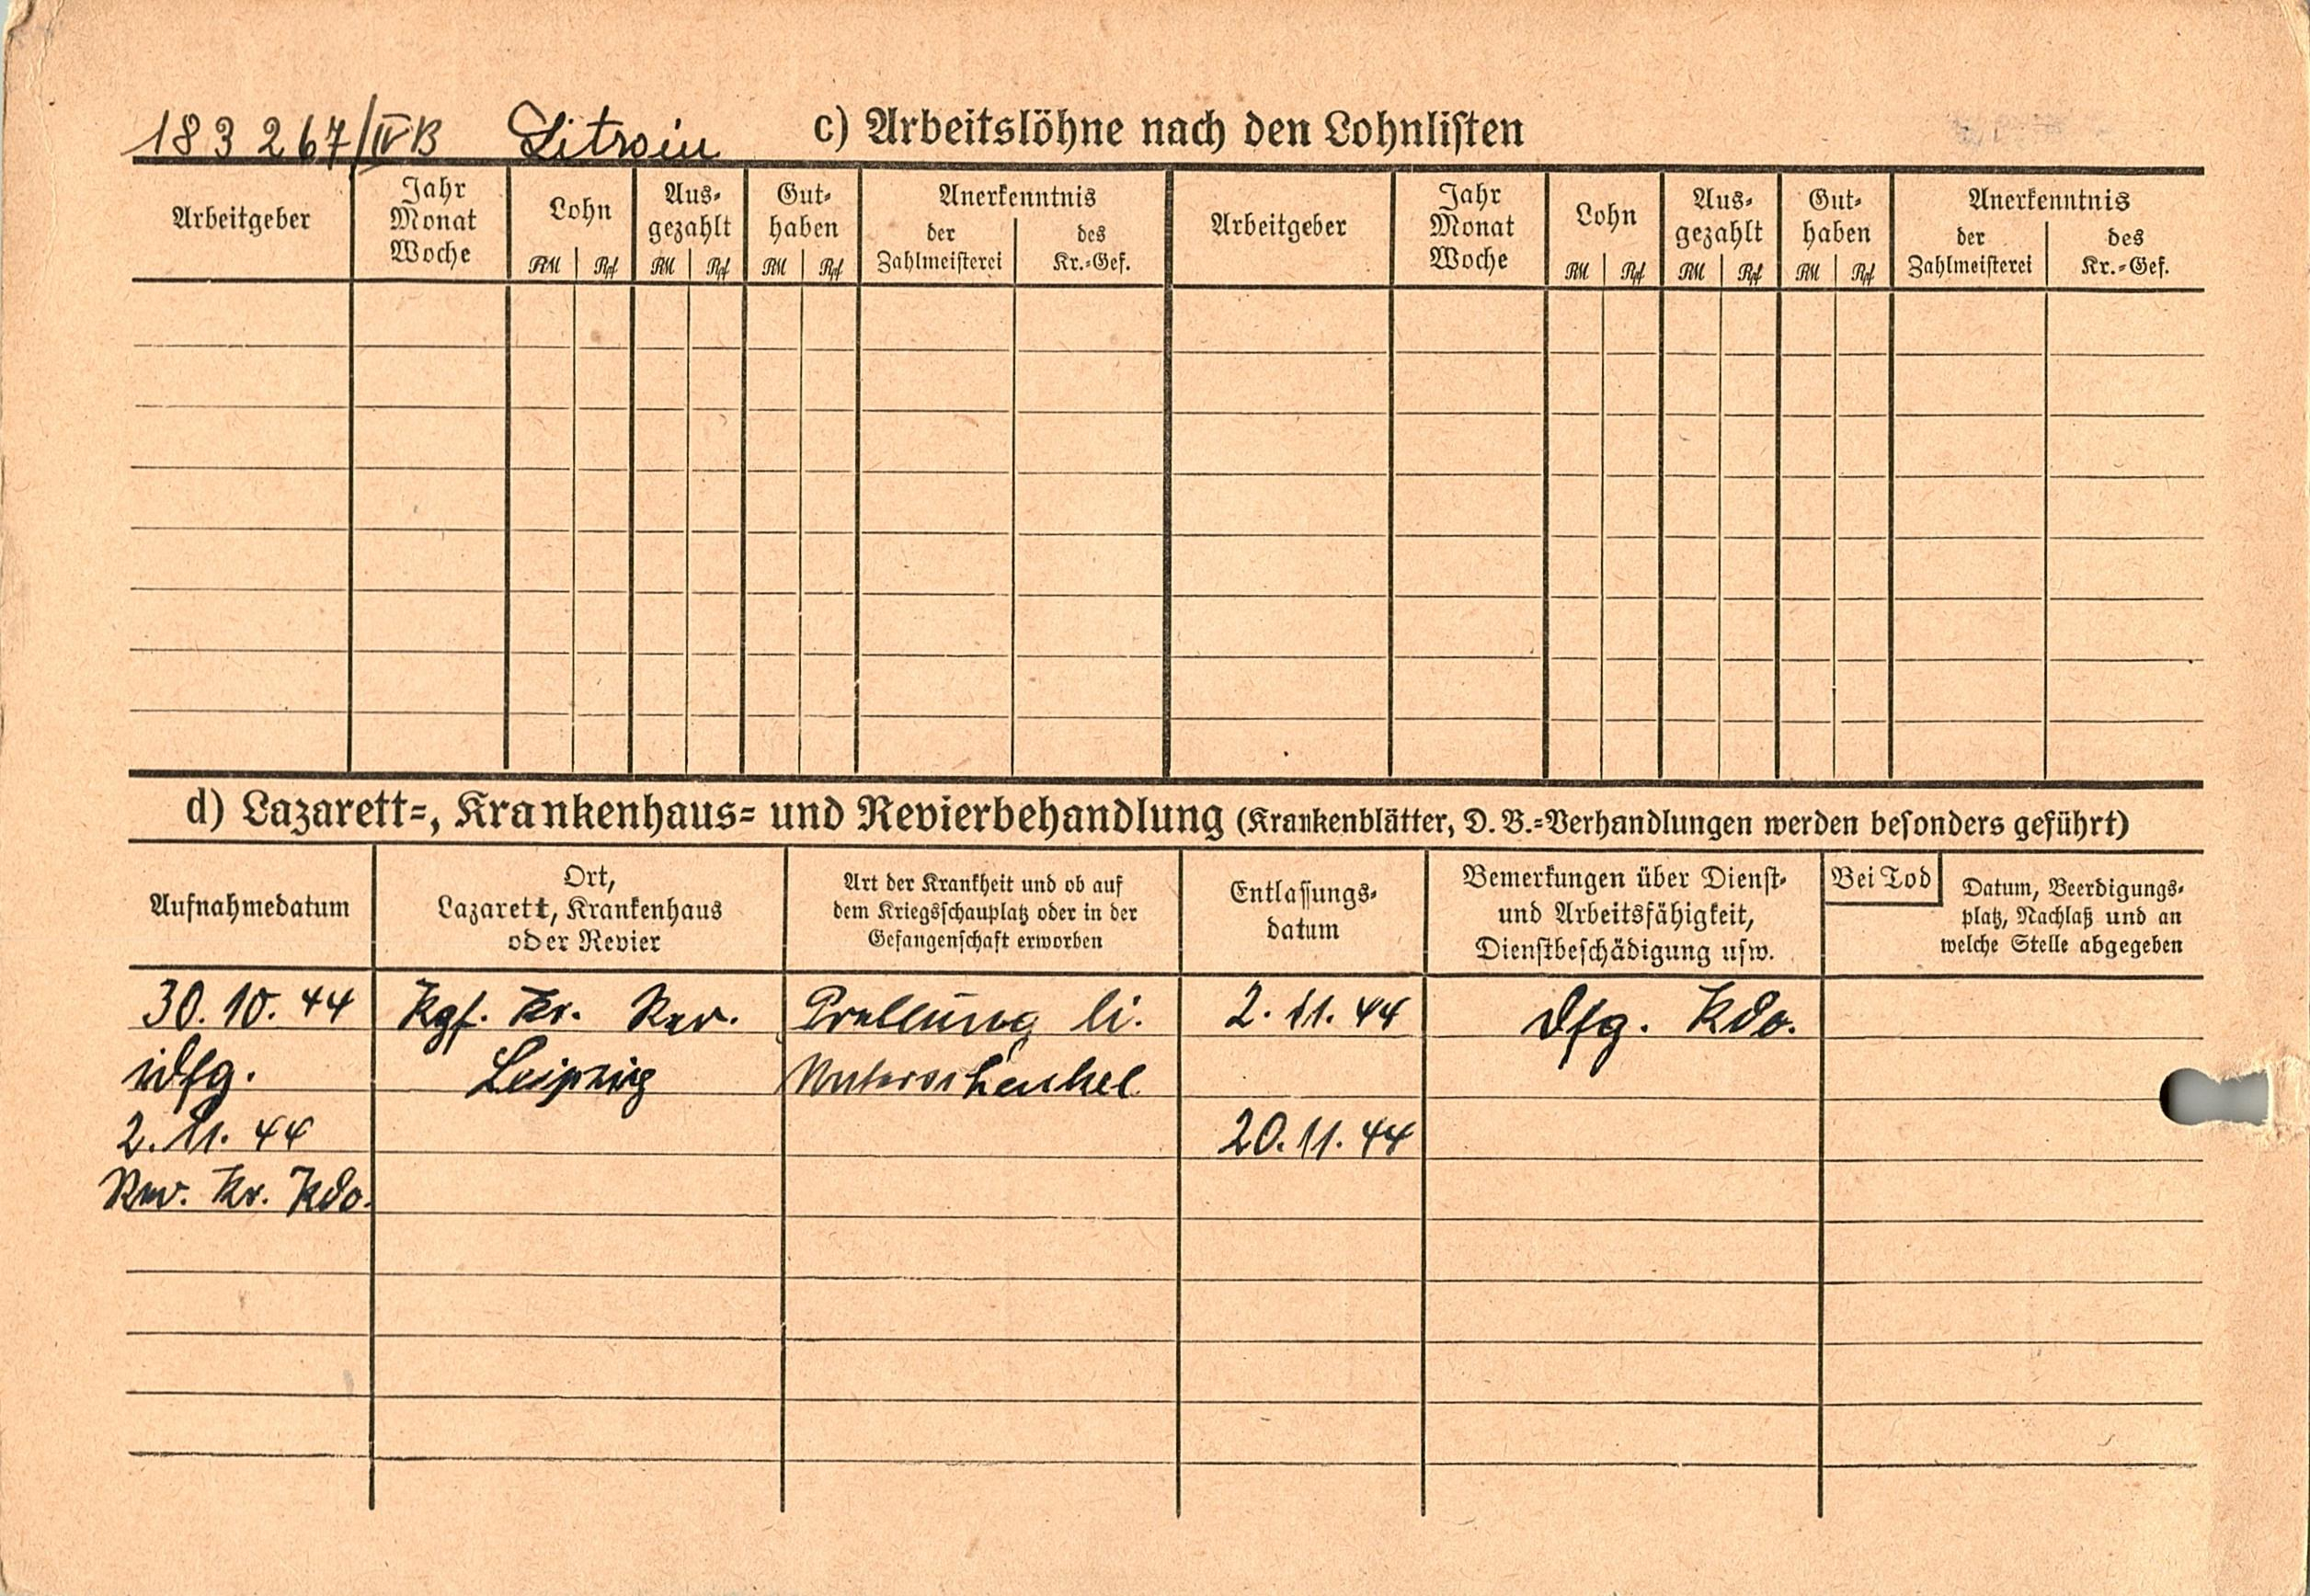 183267/IVB Litwin
c) Arbeitslöhne nach den Lohnlisten
Arbeitgeber
Jahr
Monat
Woche
Lohn
RM Rpf
Aus-
gezahlt
RM Rpf
Gut-
haben
RM Rpf
Anerkenntnis
der
Zahlmeisterei
des
Kr.-Gef.
Arbeitgeber
Jahr
Monat
Woche
Lohn
RM Rpf
Aus-
gezahlt
RM Rpf
Gut-
haben
RM Rpf
Anerkenntnis
der
Zahlmeisterei
des
Kr.-Gef.
d) Lazarett-, Krankenhaus- und Revierbehandlung (Krankenblätter, D. B.-Verhandlungen werden besonders geführt)
Aufnahmedatum
Ort,
Lazarett, Krankenhaus
oder Revier
Art der Krankheit und ob auf
dem Kriegsschauplatz oder in der
Gefangenschaft erworben
Entlassungs-
datum
Bemerkungen über Dienst-
und Arbeitsfähigkeit,
Dienstbeschädigung usw.
Bei Tod
Datum, Beerdigungs-
platz, Nachlaß und an
welche Stelle abgegeben
30.10.44 Kgf. Kr. Rev. Prellung li. 2.11.44 dfg. Kdo.
idfg. Leipzig Unterschenkel
2.11.44 20.11.44
Rev. Kr. Kdo.